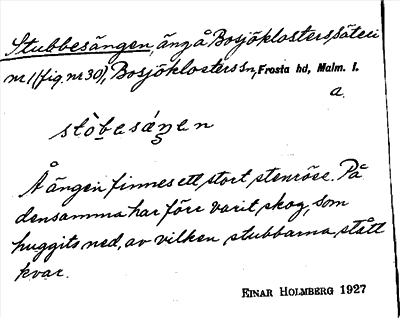 Stubbesängen, äng å Bosjöklosters säteri
nr 1 (fig. nr 30), Bosjöklosters sn, Frosta hd, Malm. l.
a.
stòbesáŋen
Å ängen finnes ett stort stenröse. På
densamma har förr varit skog, som
huggits ned, av vilken stubbarna stått
kvar.
EINAR HOLMBERG 1927